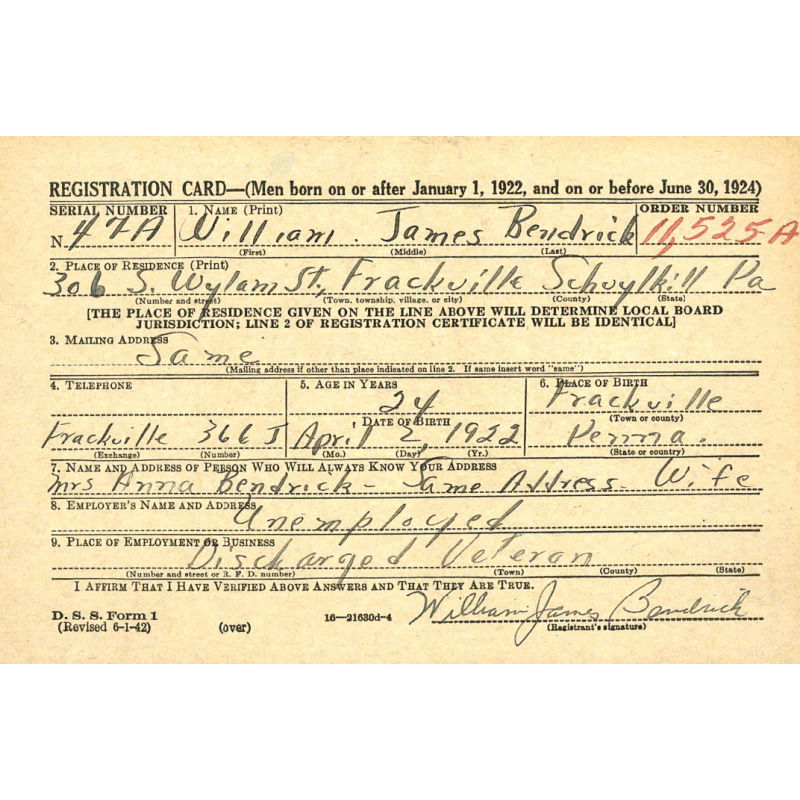 REGISTRATION CARD—(Men born on or after January 1, 1922, and on or before June 30, 1924)
SERIAL NUMBER 1. NAME (Print) ORDER NUMBER
N 47A William James Bendrick 11,525-A
(First) (Middle) (Last)
2. PLACE OF RESIDENCE (Print)
306 S. Wylam St., Frackville Schuylkill Pa
(Number and street) (Town, township, village, or city) (County) (State)
[THE PLACE OF RESIDENCE GIVEN ON THE LINE ABOVE WILL DETERMINE LOCAL BOARD
JURISDICTION; LINE 2 OF REGISTRATION CERTIFICATE WILL BE IDENTICAL]
3. MAILING ADDRESS
Same
(Mailing address if other than place indicated on line 2. If same insert word "same")
4. TELEPHONE 5. AGE IN YEARS 6. PLACE OF BIRTH
24 Frackville
DATE OF BIRTH (Town or county)
Frackville 366 J April 2, 1922 Penna.
(Exchange) (Number) (Mo.) (Day) (Yr.) (State or country)
7. NAME AND ADDRESS OF PERSON WHO WILL ALWAYS KNOW YOUR ADDRESS
Mrs Anna Bendrick - Same Address - Wife
8. EMPLOYER'S NAME AND ADDRESS
Unemployed
9. PLACE OF EMPLOYMENT OR BUSINESS
Discharged Veteran
(Number and street or R. F. D. number) (Town) (County) (State)
I AFFIRM THAT I HAVE VERIFIED ABOVE ANSWERS AND THAT THEY ARE TRUE.
William James Bendrick
D. S. S. Form 1 16—21630d-4
(Revised 6-1-42) (over) (Registrant's signature)